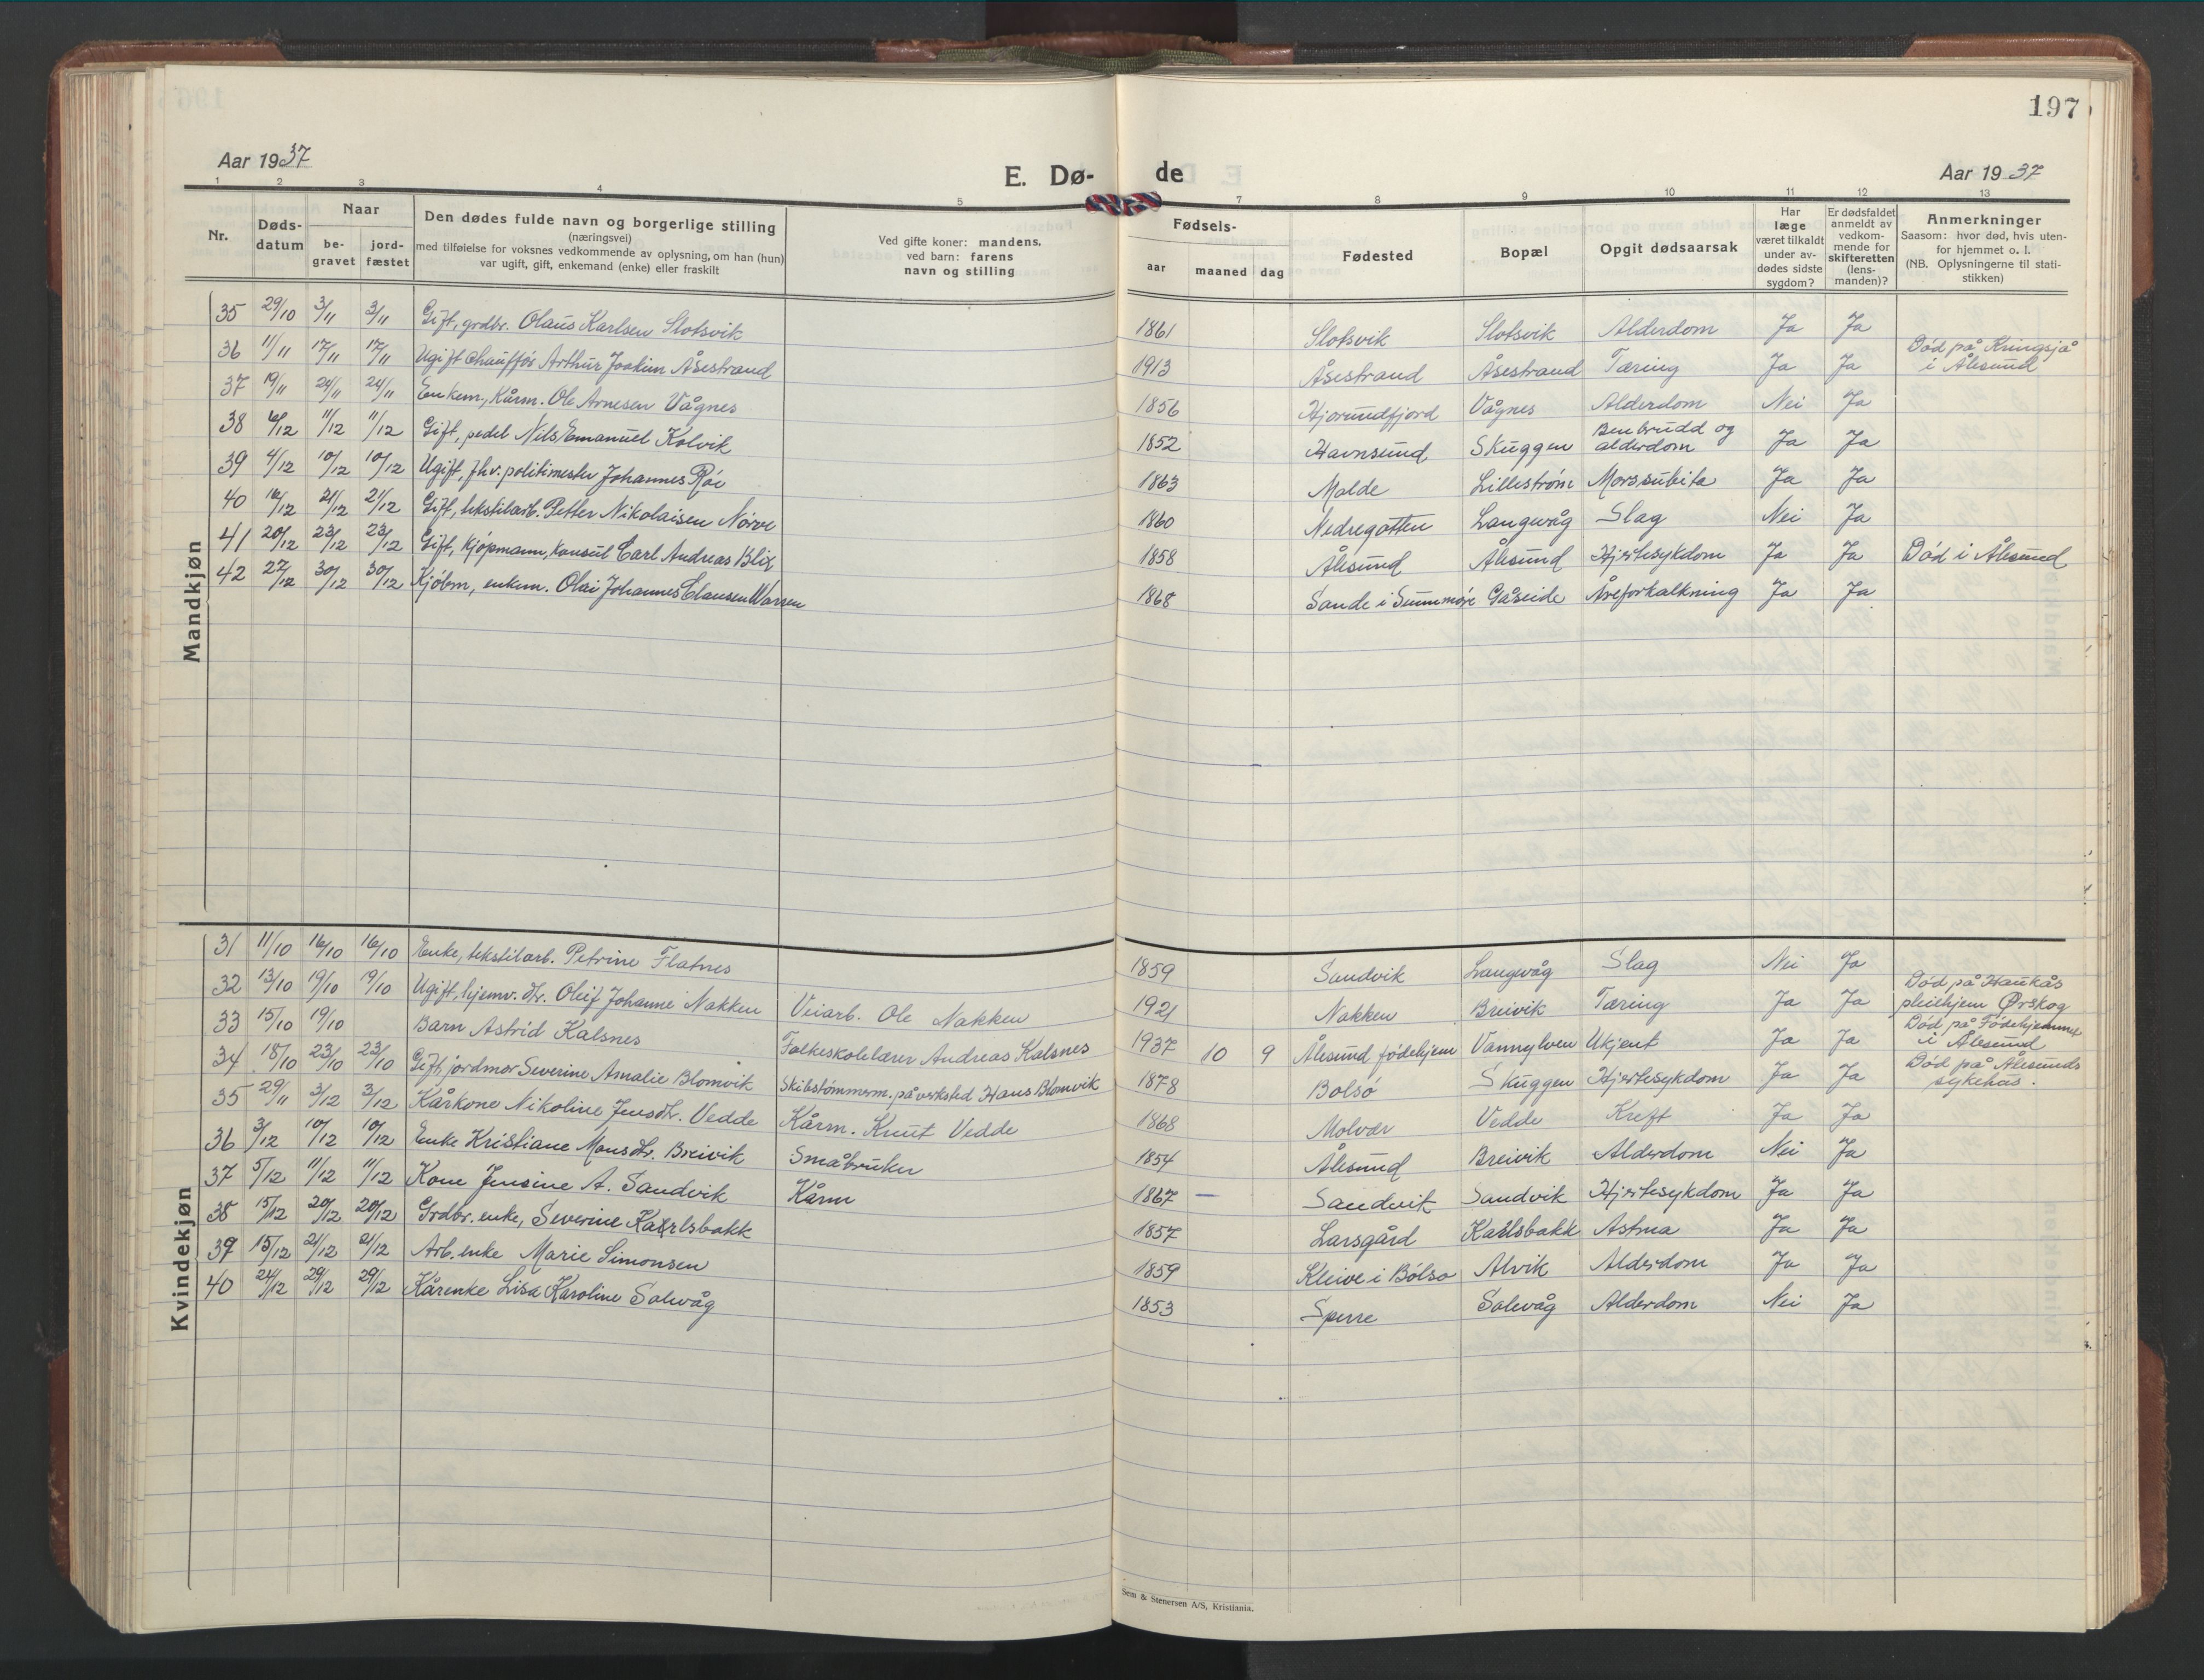 197
Aar 1937
E. Dø-
de
Aar 1937
1 2 3 4 5 7 8 9 10 11 12 13
Nr.
Døds-
datum
Naar
be-
gravet
jord-
fæstet
Den dødes fulde navn og borgerlige stilling
(næringsvei)
med tilføielse for voksnes vedkommende av oplysning, om han (hun)
var ugift, gift, enkemand (enke) eller fraskilt
Ved gifte koner: mandens.
ved barn: farens
navn og stilling
Fødsels-
aar maaned dag
Fødested
Bopæl
Opgit dødsaarsak
Har
læge
været tilkaldt
under av-
dødes sidste
sygdom?
Er dødsfaldet
anmeldt av
vedkom-
mende for
skifteretten
(lens-
manden)?
Anmerkninger
Saasom: hvor død, hvis uten-
for hjemmet o. l.
(NB. Oplysningerne til stati-
stikken)
Mandkjøn
35 29/10 3/11 3/11 Gift, grdbr. Olaus Karlsen Slotsvik 1861 Slotsvik Slotsvik Alderdom Ja Ja
36 11/11 17/11 17/11 Ugift chauffør Arthur Joakim Åsestrand 1913 Åsestrand Åsestrand Tæring Ja Ja Død på Kringsjå
i Ålesund
37 19/11 24/11 24/11 Enkem, Kårm. Ole Arnesen Vågnes 1856 Hjørundfjord Vågnes Alderdom Nei Ja
38 6/12 11/12 11/12 Gift, pedel Nils Emanuel Kolvik 1852 Havnsund Skuggen Benbrudd og
alderdom Ja Ja
39 4/12 10/12 10/12 Ugift, fhv. politimester Johannes Røe 1863 Molde Lillestrøm Mors subita Ja Ja
40 16/12 21/12 21/12 Gift, tekstilarb. Petter Nikolaisen Nørve 1860 Nedregotten Langevåg Slag Nei Ja
41 20/12 23/12 23/12 Gift, kjøpmann, konsul Carl Andreas Blix 1858 Ålesund Ålesund Hjertesykdom Ja Ja Død i Ålesund
42 27/12 30/12 30/12 Kjøbm, enkem. Olai Johannes Clausen Warren 1868 Sande i Sunnmøre Gåseide Åreforkalkning Ja Ja
Kvindekjøn
31 11/10 16/10 16/10 Enke, tekstilarb. Petrine Flatnes 1859 Sandvik Langevåg Slag Nei Ja
32 13/10 19/10 19/10 Ugift, hjemv. dtr. Oleif Johanne Nakken Veiarb. Ole Nakken 1921 Nakken Breivik Tæring Ja Ja Død på Haukås
pleiehjem Ørskog
33 15/10 19/10 Barn Astrid Kalsnes Folkeskolelærer Andreas Kalsnes 1937 10 9 Ålesund fødehjem Vannylven Ukjent Ja Ja Død på Fødehjemmet
i Ålesund
34 18/10 23/10 23/10 Gift jordmor Severine Amalie Blomvik Skibstømmerm. på verksted Hans Blomvik 1878 Bolsø Skuggen Hjertesykdom Ja Ja Død på Ålesunds
sykehus.
35 29/11 3/12 3/12 Kårkone Nikoline Jensdtr. Vedde Kårm. Knut Vedde 1868 Molvær Vedde Kreft Ja Ja
36 3/12 10/12 10/12 Enke Kristiane Monsdtr. Breivik Småbruker 1854 Ålesund Breivik Alderdom Nei Ja
37 5/12 11/12 11/12 Kone Jensine A. Sandvik Kårm 1867 — Sandvik Sandvik Hjertesykdom Ja Ja
38 15/12 20/12 20/12 Grdbr. enke, Severine Karlsbakk 1857 Larsgård Karlsbakk Astma Ja Ja
39 15/12 21/12 21/12 Arb. enke Marie Simonsen 1859 Kleive i Bolsø Alvik Alderdom Ja Ja
40 24/12 29/12 29/12 Kårenke Lisa Karoline Solevåg 1853 Sperre Solevåg Alderdom Nei Ja
Sem & Stenersen A/S, Kristiania.